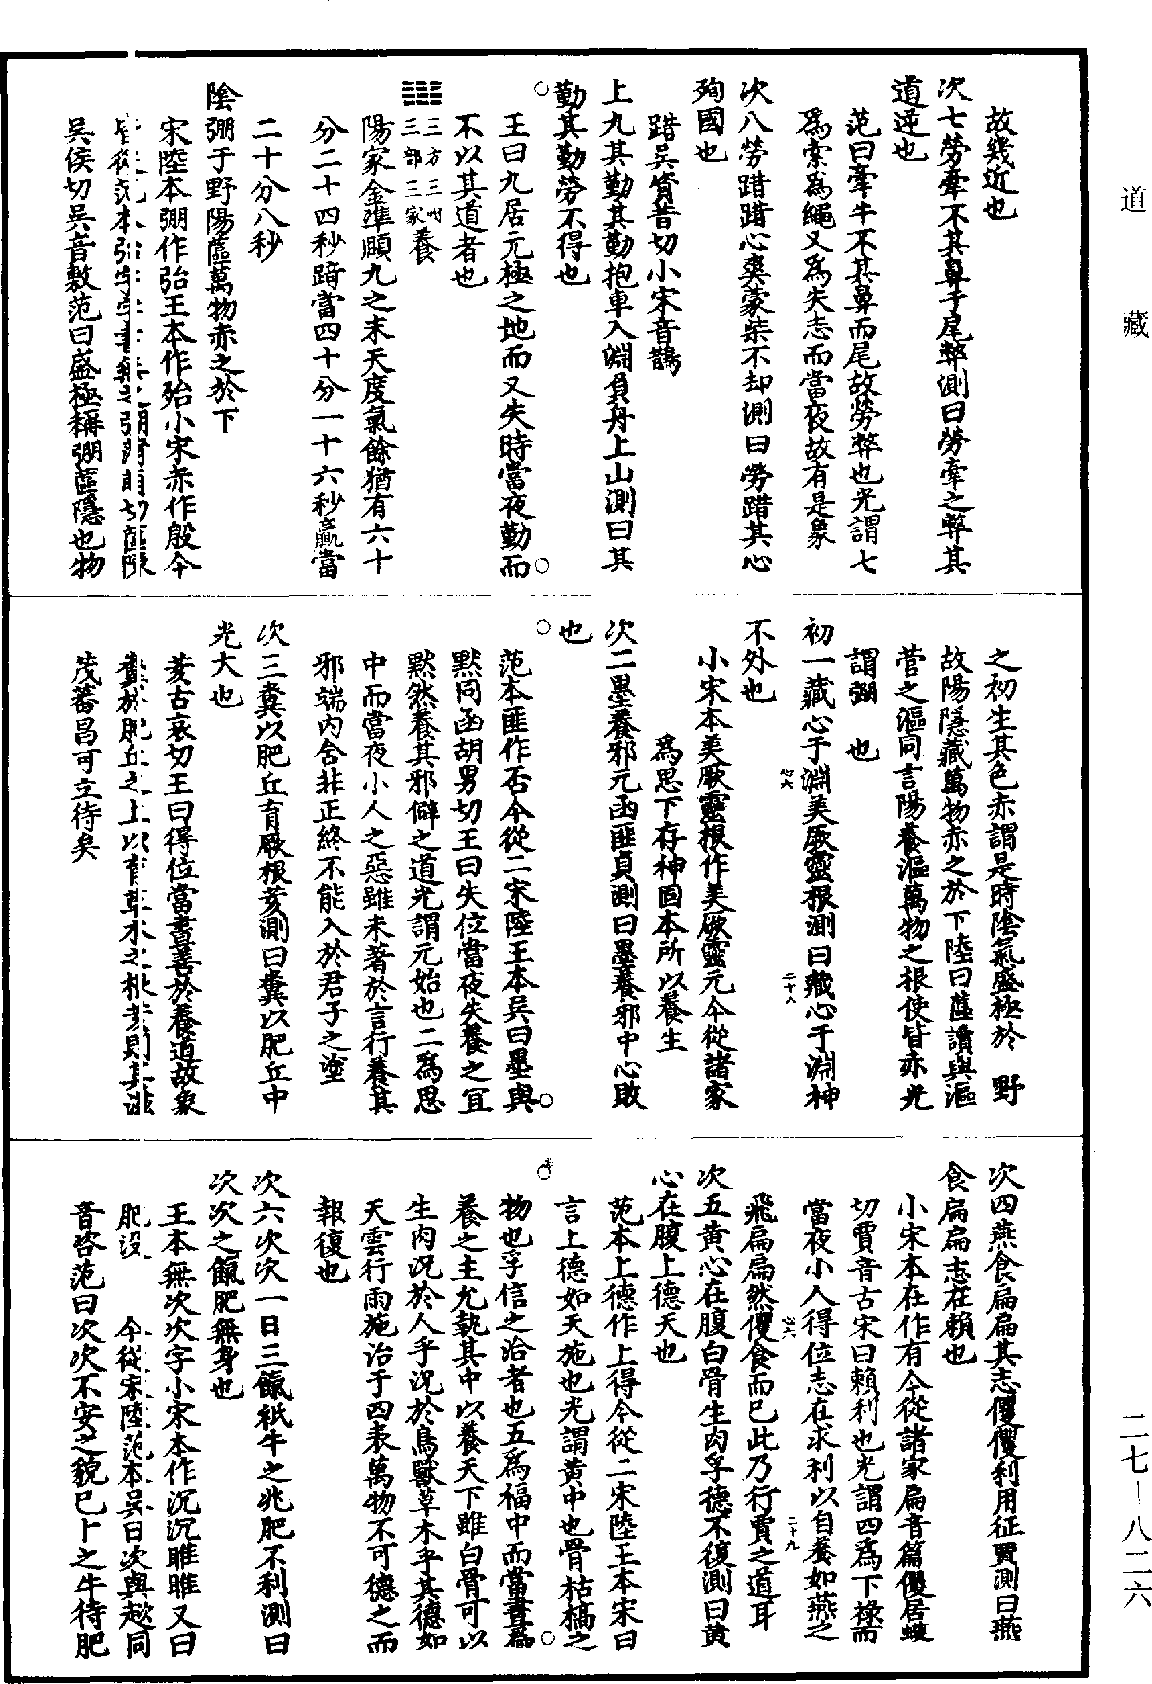 道藏
故幾近也
次七勞牽不其鼻于尾弊測曰勞牽之弊其
道逆也
范曰牽牛不其鼻而尾故勞弊也光謂七
爲索爲繩又爲失志而當夜故有是象
次八勞踖踖心爽蒙柴不却測曰勞踖其心
殉國也
踖吳資昔切小宋音鵲
上九其勤其勤抱車入淵負舟上山測曰其
勤其勤勞不得也
王曰九居元極之地而又失時當夜勤而
不以其道者也
三方三州三部三家養
陽家金準頤九之末天度氣餘猶有六十
分二十四秒踦當四十分一十六秒贏當
二十分八秒
陰弸于野陽蓲萬物赤之於下
宋陸本弸作弜王本作殆小宋赤作殷今
從范本
吳侯切吳音敷范曰盛極稱弸蓲隱也物
之初生其色赤謂是時陰氣盛極於野
故陽隱藏萬物赤之於下陸曰蓲讀與漚
菅之漚同言陽養漚萬物之根使皆赤光
謂弸也
初一藏心于淵美厥靈根測曰藏心于淵神
不外也
小宋本美厥靈根作美厥靈元今從諸家
爲思下存神固本所以養生
次二墨養邪元函匪貞測曰墨養邪中心敗
也
范本匪作否今從二宋陸王本吳曰墨與
默同函胡男切王曰失位當夜失養之宜
默然養其邪僻之道光謂元始也二爲思
中而當夜小人之惡雖未著於言行養其
邪端內含非正終不能入於君子之塗
次三糞以肥丘育厥根荄測曰糞以肥丘中
光大也
荄古哀切王曰得位當晝善於養道故象
糞於肥丘之上以育草木之根荄則其滋
茂蕃昌可立待矣
次四燕食扁扁其志㒔㒔利用征賈測曰燕
食扁扁志在賴也
小宋本在作有今從諸家扁音篇㒔居縛
切賈音古宋曰賴利也光謂四爲下祿而
當夜小人得位志在求利以自養如燕之
飛扁扁然㒔食而已此乃行賈之道耳
次五黃心在腹白骨生肉孚德不復測曰黃
心在腹上德天也
范本上德作上得今從二宋陸王本宋曰
言上德如天施也光謂黃中也骨枯槁之
物也孚信之洽者也五爲福中而當晝爲
養之主允執其中以養天下雖白骨可以
生肉況於人乎況於鳥獸草木乎其德如
天雲行雨施洽于四表萬物不可德之而
報復也
次六次次一日三餼祇牛之兆肥不利測曰
次次之餼肥無身也
王本無次次字小宋本作沉沉睢睢又曰
肥沒今從宋陸范本吳曰次與趑同
音咨范曰次次不安之貌已卜之牛待肥
二七—八二六